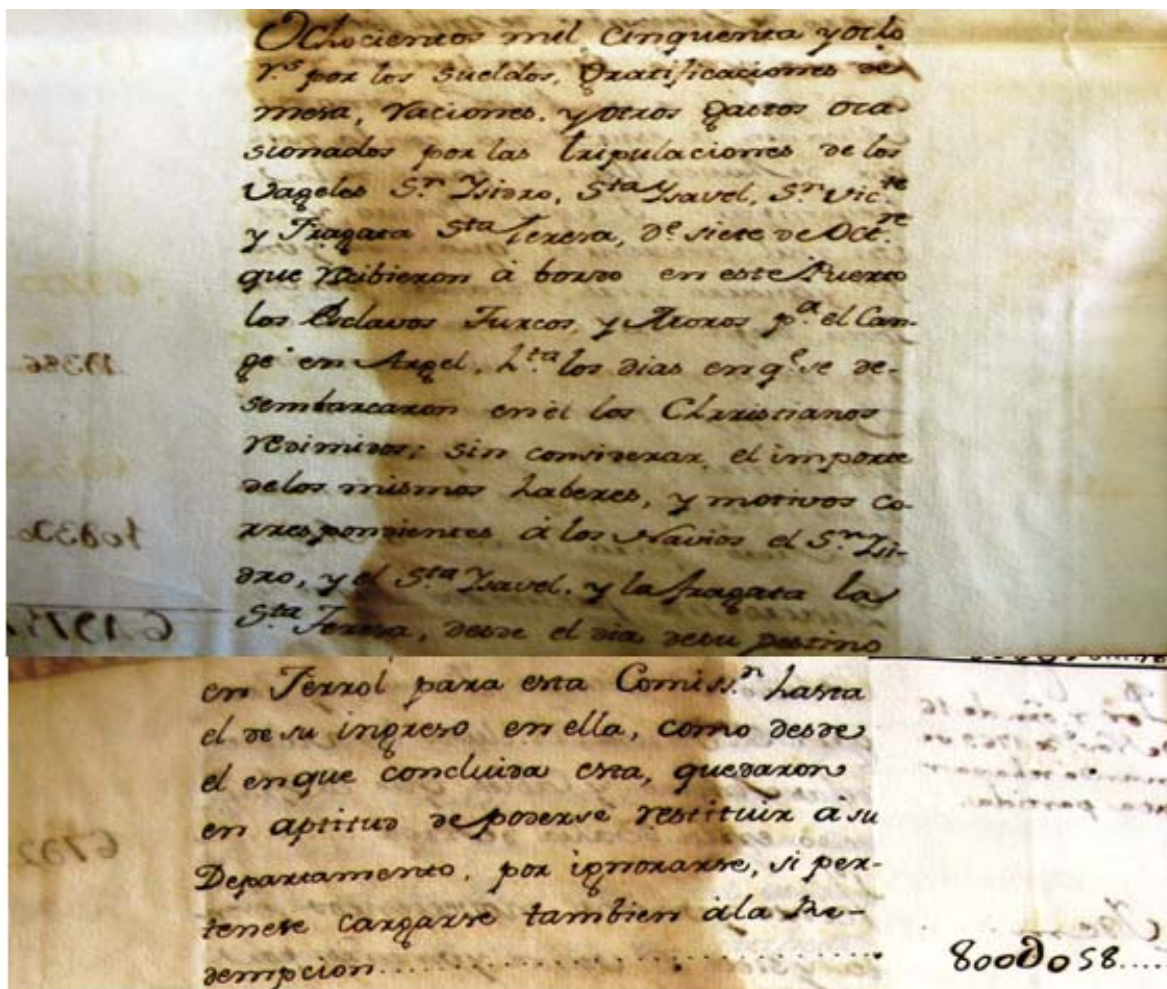 Ochocientos mil cinquenta y ocho
r.s por los Sueldos, Gratificaciones de
mesa, raciones, y otros gastos oca-
sionados por las tripulaciones de los
Vageles S.n Ysidro, S.ta Ysavel, S.n Vic.te
y Fragata S.ta Teresa, d.e siete de Oct.re
que recibieron á bordo en este Puerto
los Esclavos Turcos, y Moros p.a el Can-
ge en Argel, h.ta los dias en q.e se de-
sembarcaron en él los Christianos
redimidos; sin considerar, el importe
de los mismos haberes, y motivos co-
rrespondientes á los Navios el S.n Ysi-
dro, y el S.ta Ysavel, y la fragata la
S.ta Teresa, desde el dia de su destino
en Ferrol para esta Comiss.n hasta
el de su ingreso en ella, como desde
el en que concluida esta, quedaron
en aptitud de poderse restituir á su
Departamento, por ignorarse, si per-
tenese cargarse tambien á la Re-
dempcion.................... 800D058....